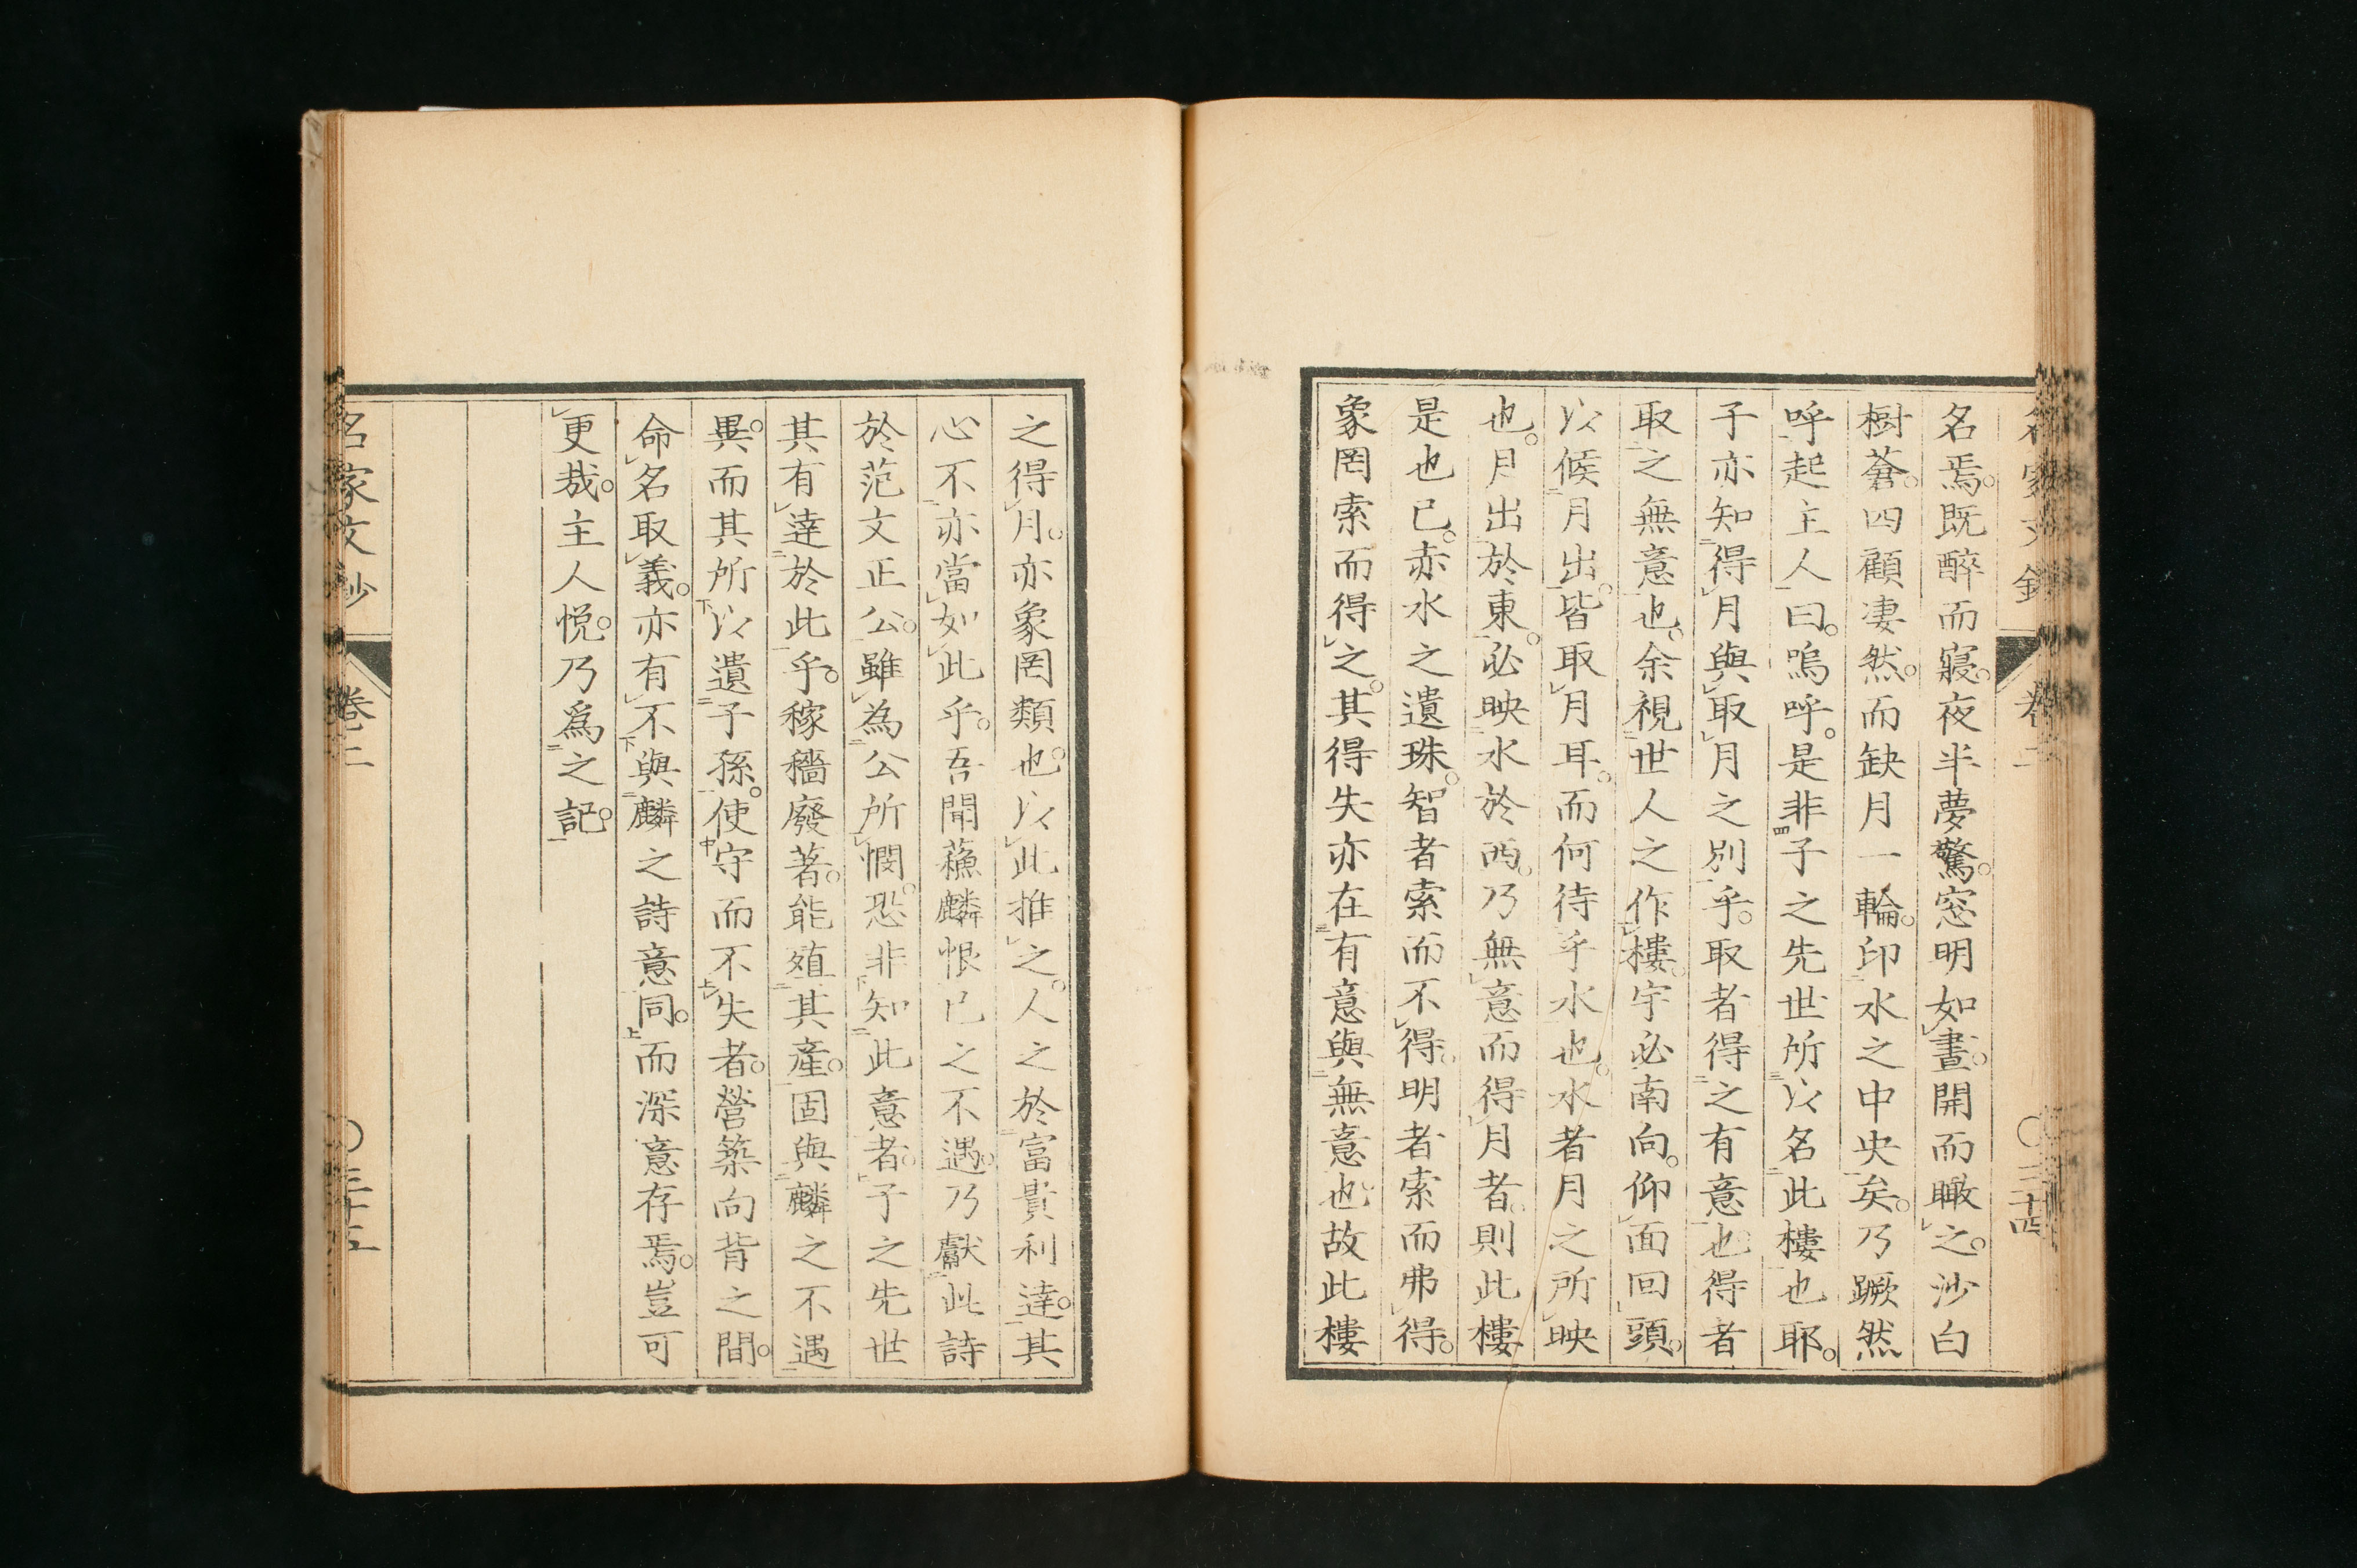 名家文鈔 卷二 ○三十四
名焉。既醉而寢。夜半夢驚。窓明如晝。開而瞰之。沙白
樹蒼。四顧凄然。而缺月一輪。印水之中央矣。乃蹶然
呼起主人曰。嗚呼。是非子之先世所以名此樓也耶。
子亦知得月與取月之別乎。取者得之有意也得者
取之無意也。余視世人之作樓。宇必南向。仰面回頭。
以候月出。皆取月耳。而何待乎水也。水者月之所映
也。月出於東。必映水於西。乃無意而得月者。則此樓
是也已。赤水之遺珠。智者索而不得。明者索而弗得。
象罔索而得之。其得失亦在有意與無意也故此樓
之得月。亦象罔類也。以此推之。人之於富貴利達。其
心不亦當如此乎。吾聞蘓麟恨己之不遇。乃獻此詩
於范文正公。雖為公所憫。恐非知此意者。子之先世
其有達於此乎。稼穡廢著。能殖其產。固與麟之不遇
異。而其所以遺子孫。使守而不失者。營築向背之間。
命名取義。亦有不與麟之詩意同。而深意存焉。豈可
更哉。主人悅。乃爲之記。
名家文鈔 卷二 ○三十五